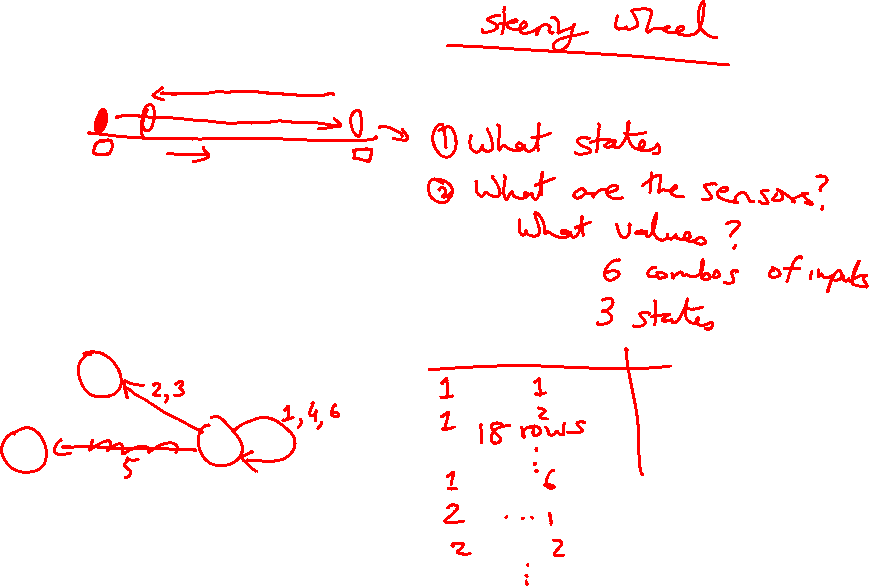 Steering Wheel
① What states
② What are the sensors?
What values?
6 combos of inputs
3 states
2, 3
1, 4, 6
5
1 1
1 2
18 rows
⋮
1 6
2 ... 1
2 2
⋮